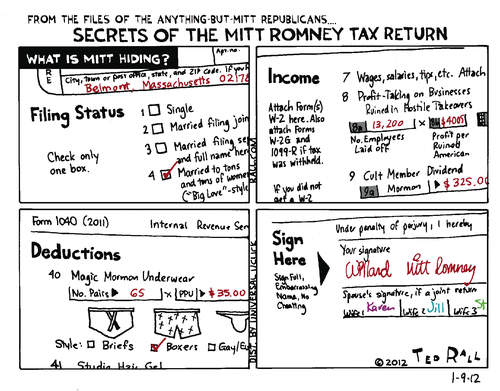 FROM THE FILES OF THE ANYTHING-BUT-MITT REPUBLICANS....
SECRETS OF THE MITT ROMNEY TAX RETURN
WHAT IS MITT HIDING?
Apt. no.
R
E
City, town or post office, state, and ZIP code. If you h
Belmont, Massachusetts 02178
Filing Status
Check only
one box.
1 Single
2 Married filing join
3 Married filing se
and full name here
4 Married to tons
and tons of women
("Big Love"-style
RALL.COM
Income
Attach Form(s)
W-2 here. Also
attach Forms
W-2G and
1099-R if tax
was withheld.
If you did not
get a W-2
7 Wages, salaries, tips, etc. Attach
8 Profit-Taking on Businesses
Ruined in Hostile Takeovers
8a 13,200 x 8b $4005
No. Employees
Laid off
Profit per
Ruined
American
9 Cult Member Dividend
9a Mormon $325.00
Form 1040 (2011) Internal Revenue Ser
Deductions
40 Magic Mormon Underwear
No. Pairs 65 x PPU $35.00
Style: Briefs Boxers Gay/Eu
41 Studio Hair Gel
DIST. BY UNIVERSAL UCLICK
Sign
Here
Sign Full,
Embarrassing
Name, No
Cheating
Under penalty of perjury, I hereby
Your signature
Willard Mitt Romney
Spouse's signature, if a joint return
Wife 1 Karen Wife 2 Jill Wife 3 St
©2012 TED RALL
1-9-12